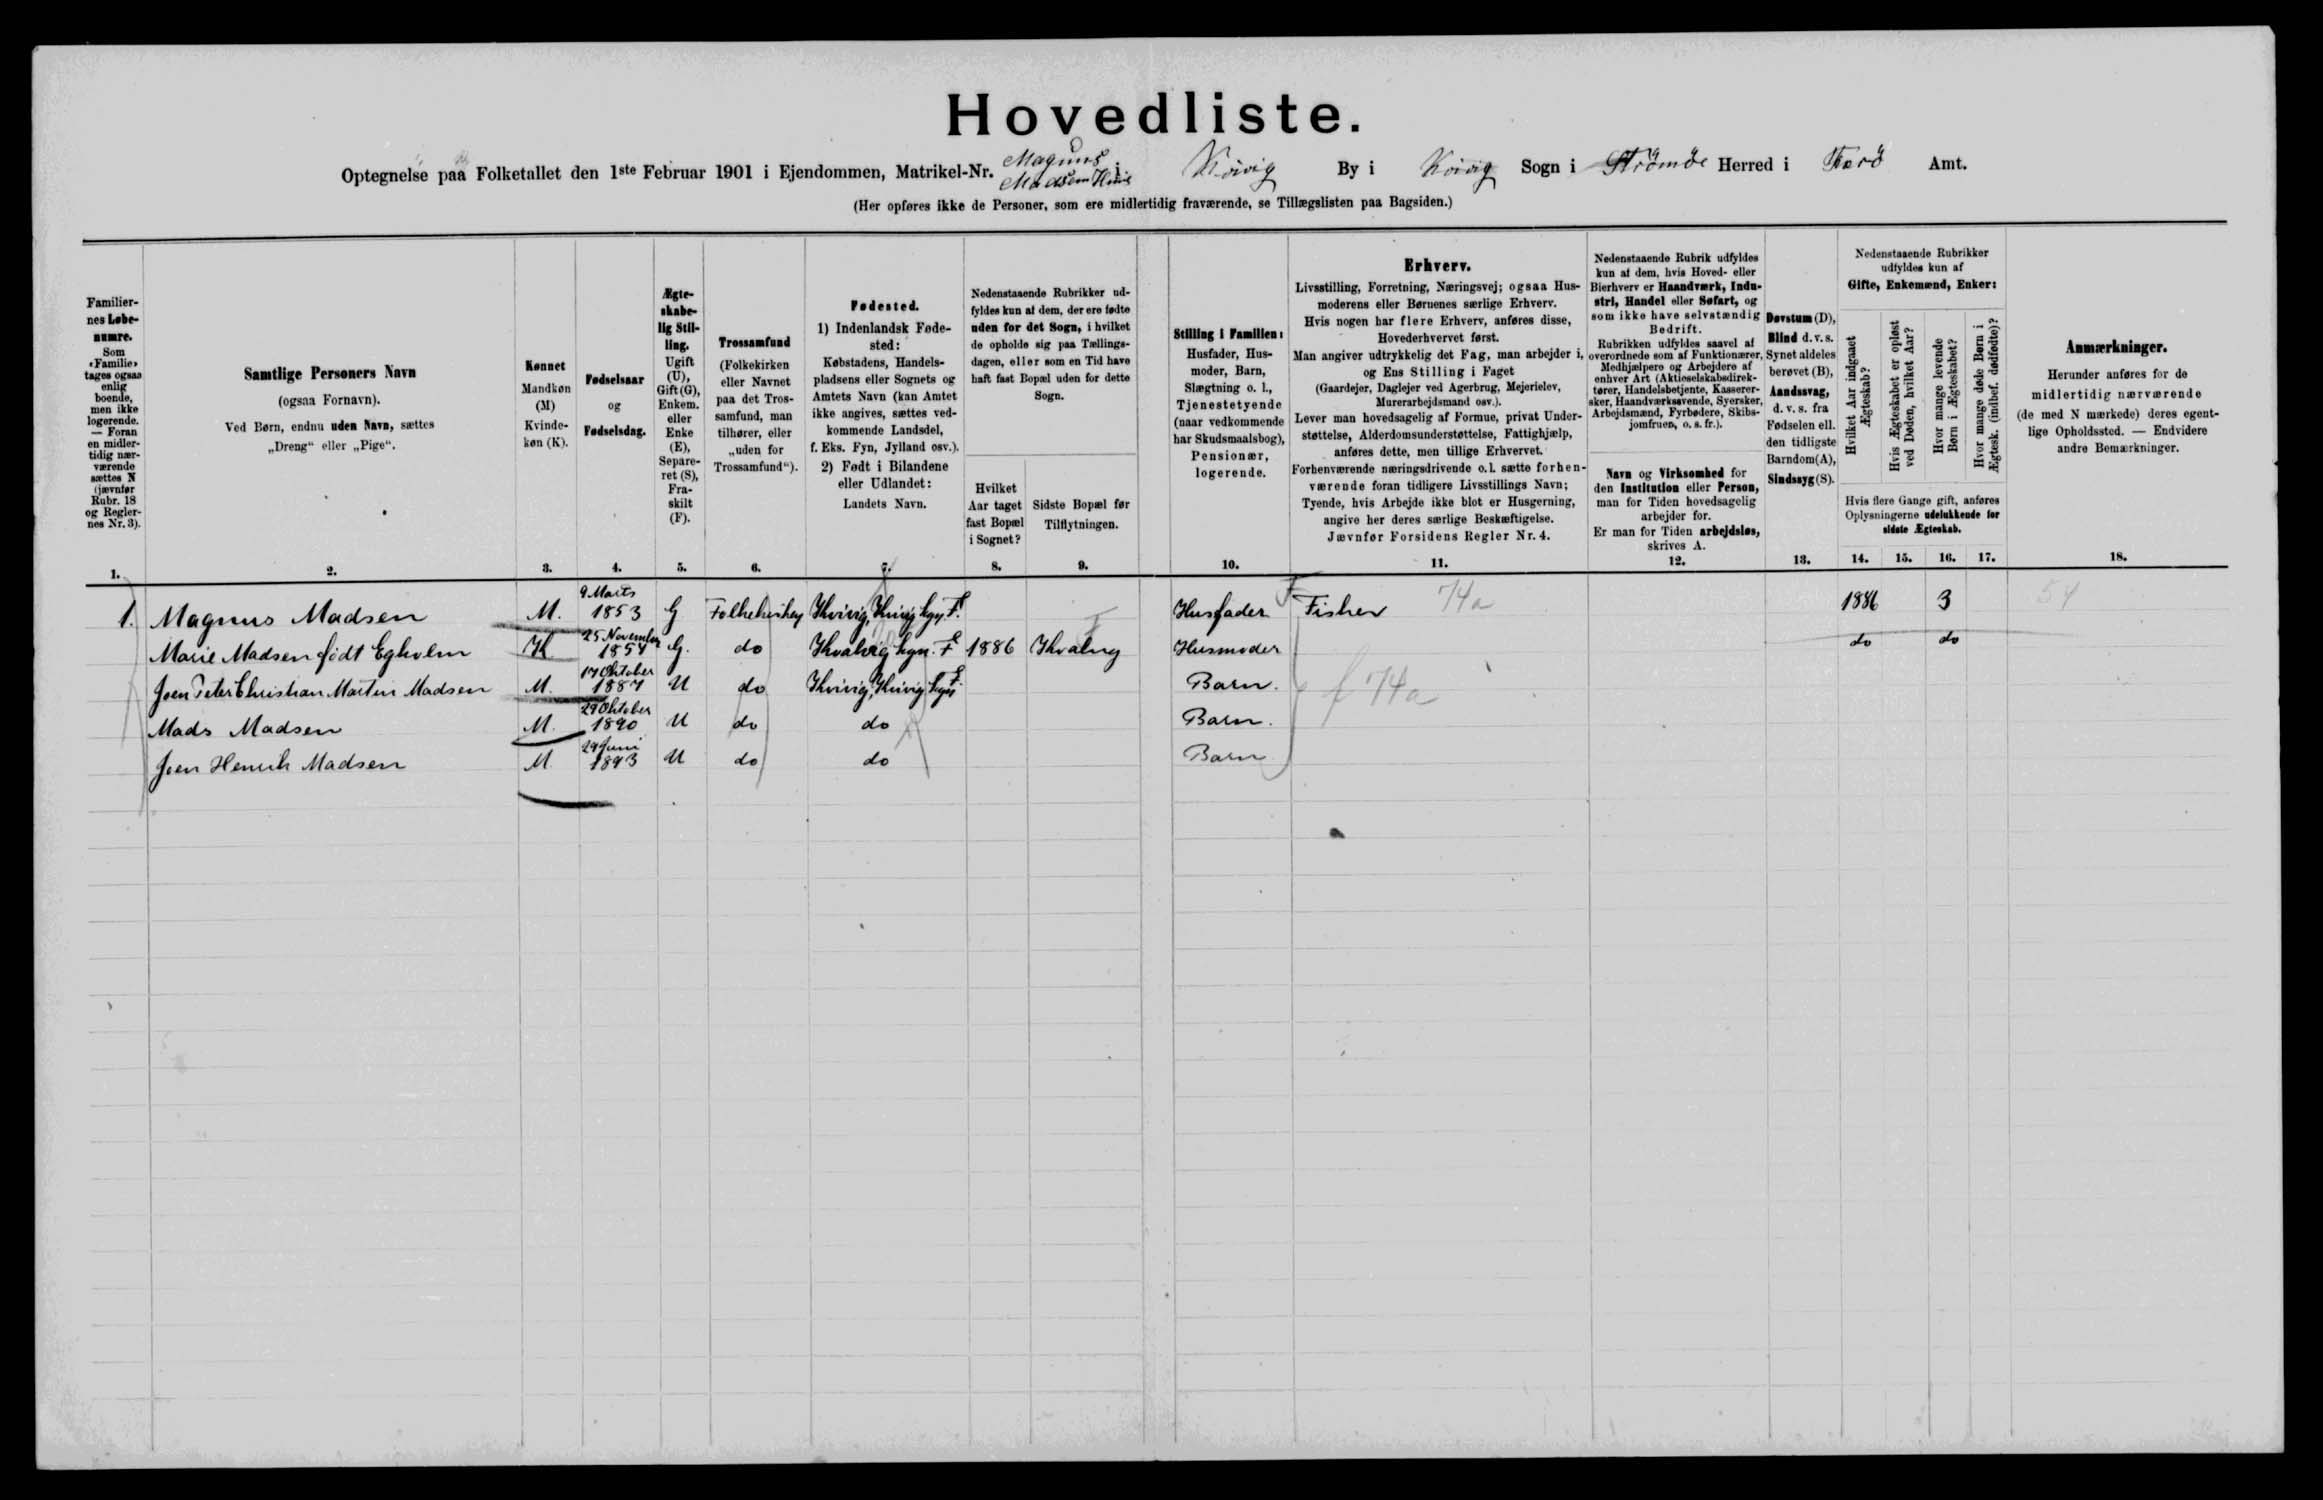 Hovedliste.
Optegnelse paa Folketallet den 1ste Februar 1901 i Ejendommen, Matrikel-Nr. Magnus Madsens Huus i Kvivig By i Kvivig Sogn i Strömöe Herred i Færö Amt.
(Her opføres ikke de Personer, som ere midlertidig fraværende, se Tillægslisten paa Bagsiden.)
Familier-
nes Løbe-
numre.
Som
«Familie»
tages ogsaa
enlig
boende,
men ikke
logerende.
— Foran
en midler-
tidig nær-
værende
sættes N
(jævnfør
Rubr. 18
og Regler-
nes Nr. 3).
1.
Samtlige Personers Navn
(ogsaa Fornavn).
Ved Børn, endnu uden Navn, sættes
„Dreng“ eller „Pige“.
2.
Kønnet
Mandkøn
(M)
Kvinde-
køn (K).
3.
Fødselsaar
og
Fødselsdag.
4.
Ægte-
skabe-
lig Stil-
ling.
Ugift
(U),
Gift (G),
Enkem.
eller
Enke
(E),
Separe-
ret (S),
Fra-
skilt
(F).
5.
Trossamfund
(Folkekirken
eller Navnet
paa det Tros-
samfund, man
tilhører, eller
„uden for
Trossamfund“).
6.
Fødested.
1) Indenlandsk Føde-
sted:
Købstadens, Handels-
pladsens eller Sognets og
Amtets Navn (kan Amtet
ikke angives, sættes ved-
kommende Landsdel,
f. Eks. Fyn, Jylland osv.).
2) Født i Bilandene
eller Udlandet:
Landets Navn.
7.
Nedenstaaende Rubrikker ud-
fyldes kun af dem, der ere fødte
uden for det Sogn, i hvilket
de opholde sig paa Tællings-
dagen, eller som en Tid have
haft fast Bopæl uden for dette
Sogn.
Hvilket
Aar taget
fast Bopæl
i Sognet?
8.
Sidste Bopæl før
Tilflytningen.
9.
Stilling i Familien:
Husfader, Hus-
moder, Barn,
Slægtning o. l.,
Tjenestetyende
(naar vedkommende
har Skudsmaalsbog),
Pensionær,
logerende.
10.
Erhverv.
Livsstilling, Forretning, Næringsvej; ogsaa Hus-
moderens eller Børnenes særlige Erhverv.
Hvis nogen har flere Erhverv, anføres disse,
Hovederhvervet først.
Man angiver udtrykkelig det Fag, man arbejder i,
og Ens Stilling i Faget
(Gaardejer, Daglejer ved Agerbrug, Mejerielev,
Murerarbejdsmand osv.).
Lever man hovedsagelig af Formue, privat Under-
støttelse, Alderdomsunderstøttelse, Fattighjælp,
anføres dette, men tillige Erhvervet.
Forhenværende næringsdrivende o. l. sætte forhen-
værende foran tidligere Livsstillings Navn;
Tyende, hvis Arbejde ikke blot er Husgerning,
angive her deres særlige Beskæftigelse.
Jævnfør Forsidens Regler Nr. 4.
11.
Nedenstaaende Rubrik udfyldes
kun af dem, hvis Hoved- eller
Bierhverv er Haandværk, Indu-
stri, Handel eller Søfart, og
som ikke have selvstændig
Bedrift.
Rubrikken udfyldes saavel af
overordnede som af Funktionærer,
Medhjælpere og Arbejdere af
enhver Art (Aktieselskabsdirek-
tører, Handelsbetjente, Kasserer-
sker, Haandværkssvende, Syersker,
Arbejdsmænd, Fyrbødere, Skibs-
jomfruen, o. s. fr.).
Navn og Virksomhed for
den Institution eller Person,
man for Tiden hovedsagelig
arbejder for.
Er man for Tiden arbejdsløs,
skrives A.
12.
Døvstum (D),
Blind d. v. s.
Synet aldeles
berøvet (B),
Aandssvag,
d. v. s. fra
Fødselen ell.
den tidligste
Barndom (A),
Sindssyg (S).
13.
Nedenstaaende Rubrikker
udfyldes kun af
Gifte, Enkemænd, Enker:
Hvilket Aar indgaaet
Ægteskab?
Hvis Ægteskabet er opløst
ved Døden, hvilket Aar?
Hvor mange levende
Børn i Ægteskabet?
Hvor mange døde Børn i
Ægtesk. (indbef. dødfødte)?
Hvis flere Gange gift, anføres
Oplysningerne udelukkende for
sidste Ægteskab.
14. 15. 16. 17.
Anmærkninger.
Herunder anføres for de
midlertidig nærværende
(de med N mærkede) deres egent-
lige Opholdssted. — Endvidere
andre Bemærkninger.
18.
1. Magnus Madsen M. 9 Marts 1853 G Folkekirken Kvivig, Kvivig Sogn F. Husfader F Fisker 74a 1886 3 54
Marie Madsen födt Egholm K 25 November 1854 G. do Kvalvig Sogn. F 1886 Kvalvig F Husmoder do do
Joen Peter Christian Martin Madsen M. 17 Oktober 1887 U do Kvivig, Kvivig Sogn F. Barn. f 74a
Mads Madsen M. 29 Oktober 1890 U do do Barn.
Joen Henrik Madsen M. 29 Juni 1893 U do do Barn